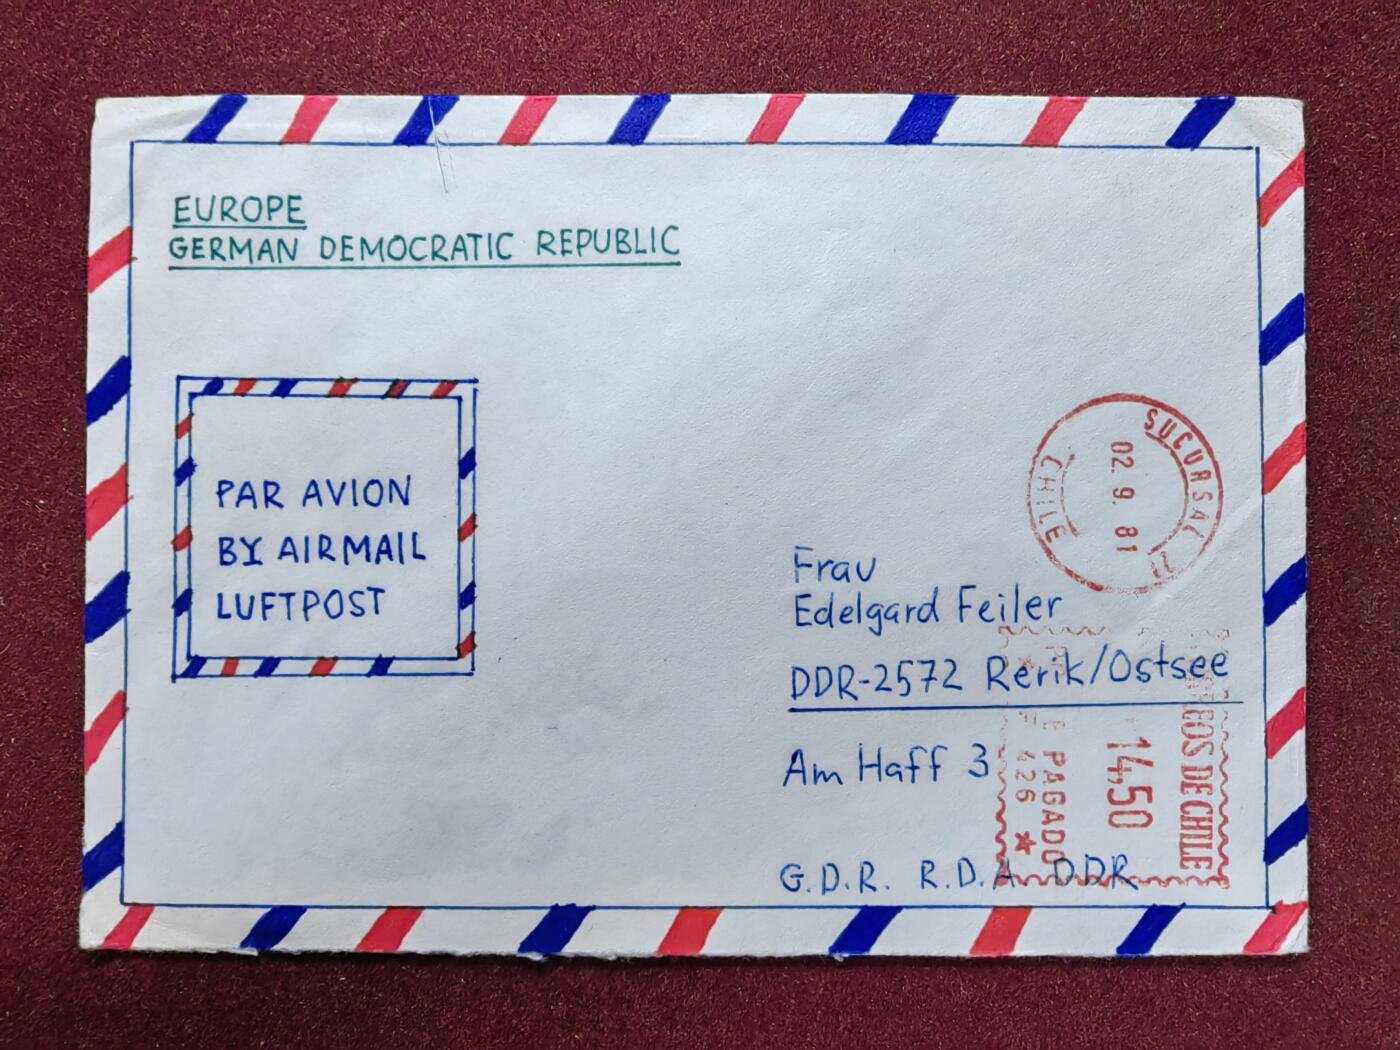 EUROPE
GERMAN DEMOCRATIC REPUBLIC
PAR AVION
BY AIRMAIL
LUFTPOST
SUCURSAL
02 9. 81
CHILE
Frau
Edelgard Feiler
DDR-2572 Rerik/Ostsee
Am Haff 3
G.D.R. R.D.A DDR
DE CHILE
14,50
PAGADO
426 *